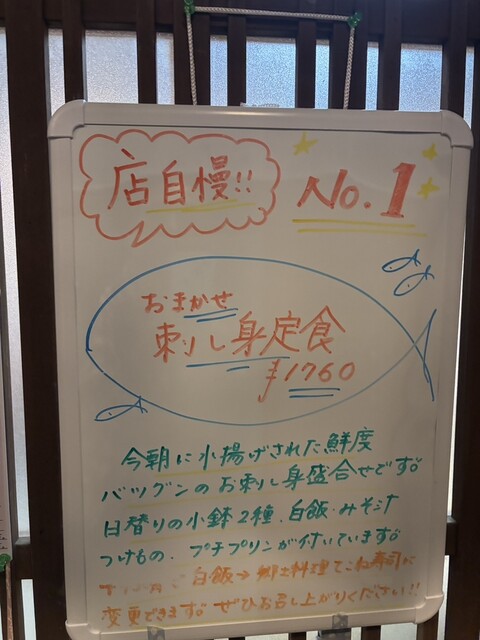 店自慢!!
No.1
おまかせ
刺し身定食
¥1760
今朝に水揚げされた鮮度
バツグンのお刺し身盛合せです。
日替りの小鉢2種、白飯・みそ汁
つけもの、プチプリンが付いています。
白飯→郷土料理てこね寿司に
変更できます。ぜひお召し上がりください!!